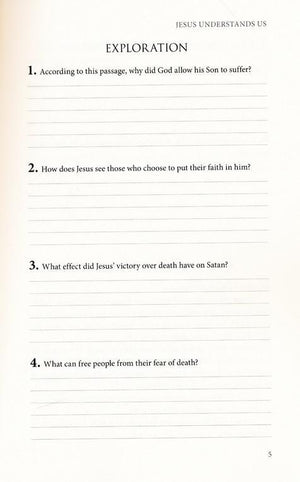 JESUS UNDERSTANDS US
EXPLORATION
1. According to this passage, why did God allow his Son to suffer?
2. How does Jesus see those who choose to put their faith in him?
3. What effect did Jesus' victory over death have on Satan?
4. What can free people from their fear of death?
5